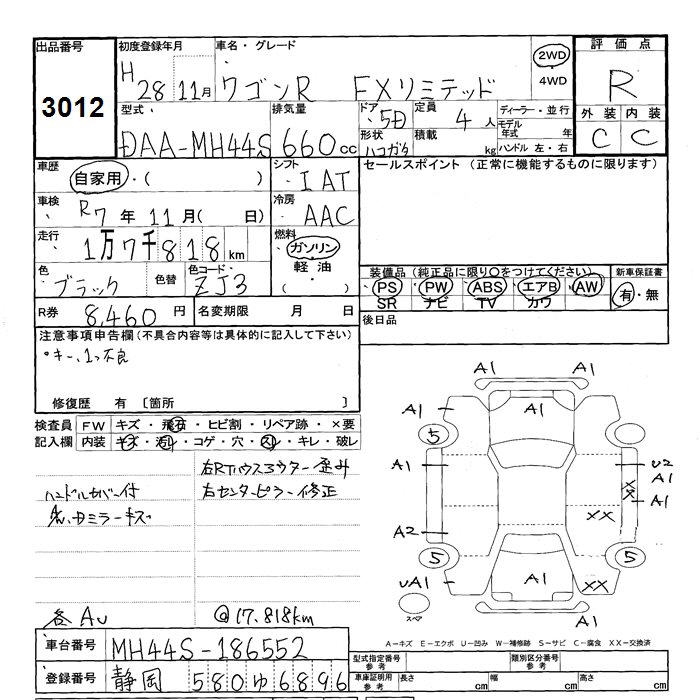 出品番号 初度登録年月 車名・グレード 評価点
3012 H28 11月 ワゴンR FXリミテッド 2WD 4WD R
型式 排気量 ドア 定員 ディーラー・並行 外装 内装
DAA-MH44S 660cc 5D 4人 モデル年式 年 C C
形状 ハコガタ 積載 kg ハンドル 左・右
車歴 自家用・( ) シフト IAT セールスポイント (正常に機能するものに限ります)
車検 R7年11月( 日) 冷房 AAC
走行 1万7千818km 燃料 ガソリン 軽油 ・( )
色 ブラック 色替 色コード ZJ3
装備品 (純正品に限り〇をつけてください) 新車保証書
PS PW ABS エアB AW 有・無
SR ナビ TV カワ
R券 8,460円 名変期限 月 日 後日品
注意事項申告欄 (不具合内容等は具体的に記入して下さい)
キー、1つ不良
修復歴 有 [箇所 ]
検査員 FW キズ・飛石・ヒビ割・リペア跡・×要
記入欄 内装 キズ・汚れ・コゲ・穴・スレ・キレ・破レ
右Rタイヤハウスアウター歪み
ハンドルカバー付 右センターピラー修正
左右ドアミラーキズ
各AU @17,818km
A1
A1 A1 A1
5
A1 U2
A1
XX A1
XX
A2
5 5
UA1 A1 XX
スペア
A1
A-キズ E-エクボ U-凹み W-補修跡 S-サビ C-腐食 XX-交換済
車台番号 MH44S-186552
登録番号 静岡 580 ゆ 6896
型式指定番号 参考 類別区分番号 参考
車庫証明用 参考 長さ cm 幅 cm 高さ cm